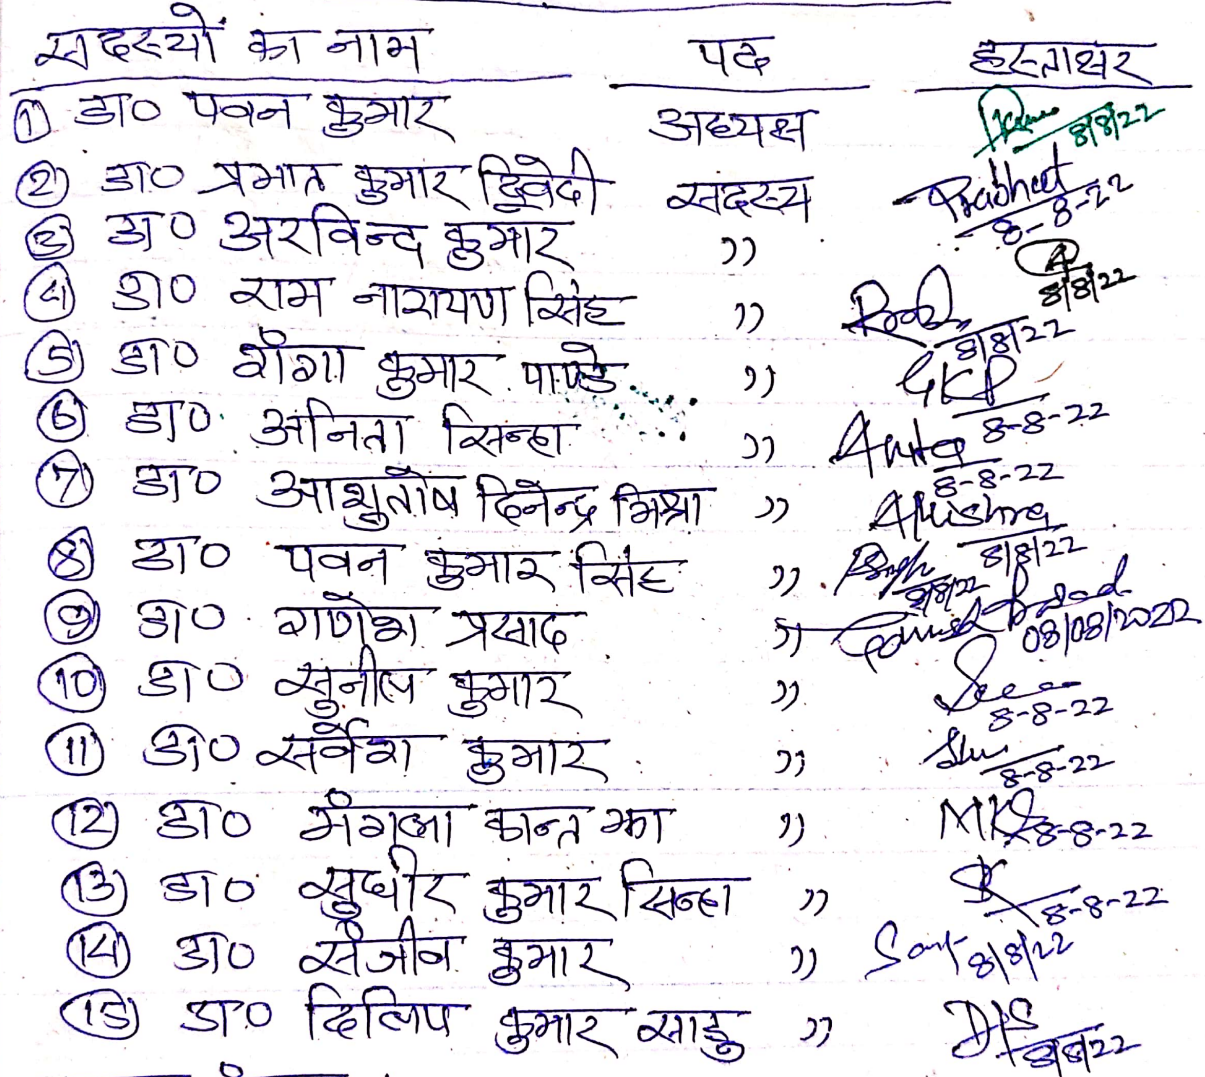 सदस्यों का नाम पद हस्ताक्षर
① डा० पवन कुमार अध्यक्ष 8/8/22
② डा० प्रभात कुमार द्विवेदी सदस्य Prabhat 8-8-22
③ डा० अरविन्द कुमार " 8/8/22
④ डा० राम नारायण सिंह " 8/8/22
⑤ डा० गंगा कुमार पाण्डे " GKP 8-8-22
⑥ डा० अनिता सिन्हा " Anita 8-8-22
⑦ डा० आशुतोष दिनेन्द्र मिश्रा " AMishra 8/8/22
⑧ डा० पवन कुमार सिंह " 8/8/22
⑨ डा० गणेश प्रसाद " Ganesh Prasad 08/08/2022
⑩ डा० सुनील कुमार " 8-8-22
⑪ डा० सर्वेश कुमार " 8-8-22
⑫ डा० मंगला कान्त झा " 8-8-22
⑬ डा० सुधीर कुमार सिन्हा " SK 8-8-22
⑭ डा० संजीव कुमार " 8/8/22
⑮ डा० दिलिप कुमार साहु " 8/8/22